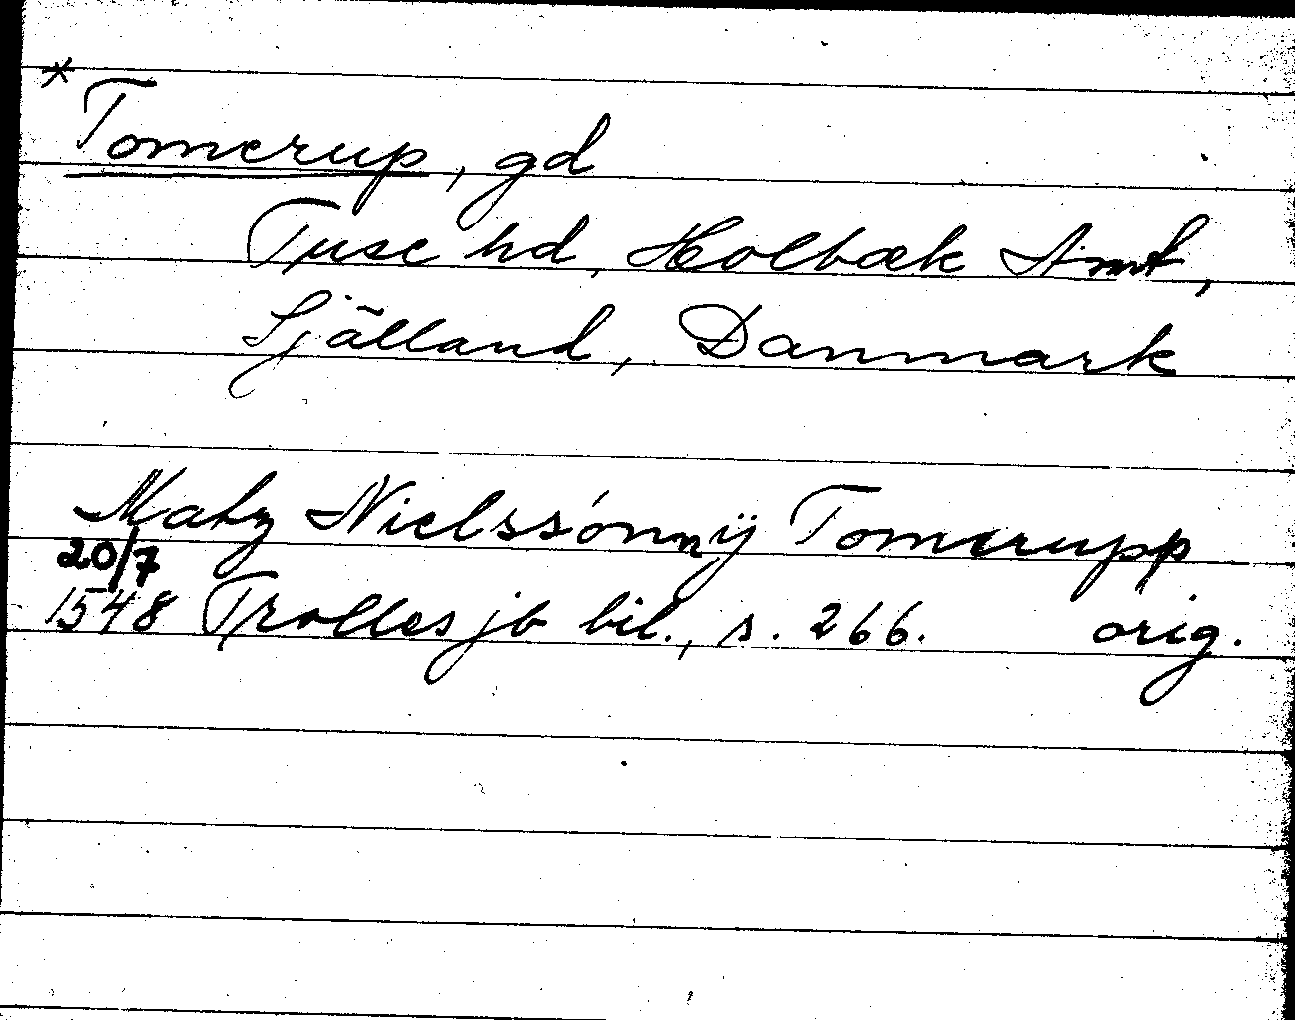 * Tomerup, gd
Tuse hd, Holbæk Amt,
Själland, Danmark
Matz Nielssónn ÿ Tomerupp
20/7
1548 Trolles jb bil., s. 266. orig.